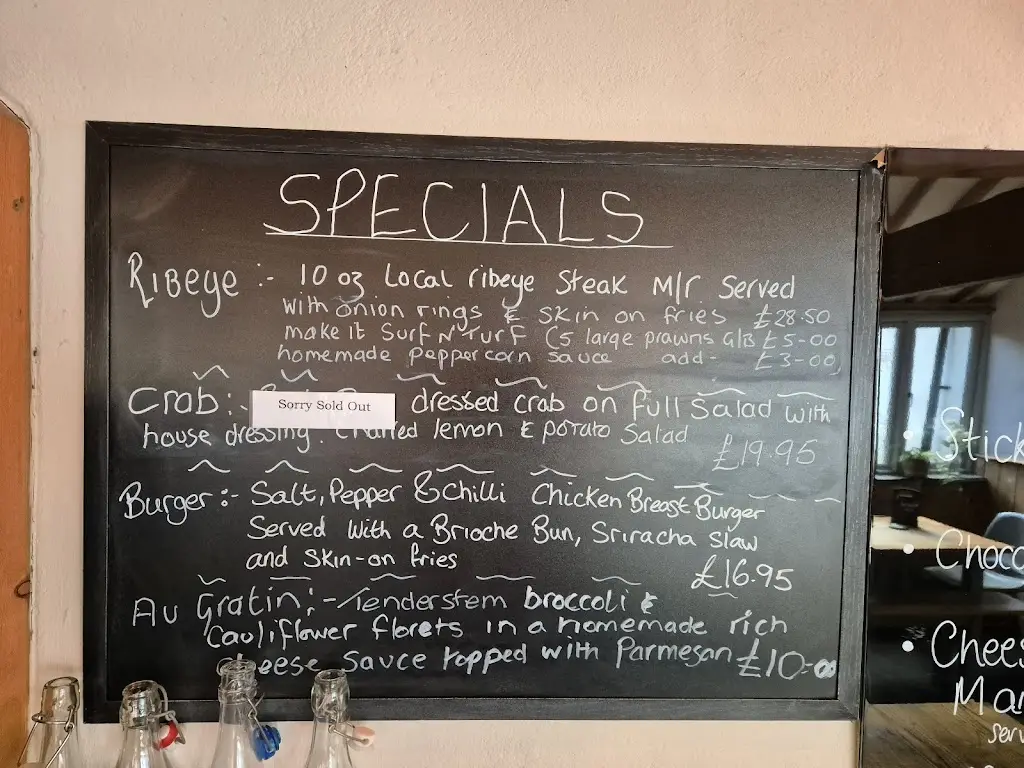 SPECIALS
Ribeye :- 10 oz Local ribeye Steak M/r Served
with onion rings & skin on fries £28.50
make it Surf N Turf (5 large prawns £5-00
homemade peppercorn sauce add - £3-00
Crab :- dressed crab on full salad with
Sorry Sold Out
house dressing. lemon & potato salad £19.95
Burger :- Salt, Pepper & Chilli Chicken Breast Burger
Served With a Brioche Bun, Sriracha Slaw
and skin-on fries £16.95
Au Gratin :- Tenderstem broccoli &
cauliflower florets in a homemade rich
cheese sauce topped with Parmesan £10-00
• Stick
• Choco
• Chees
Mar
serv